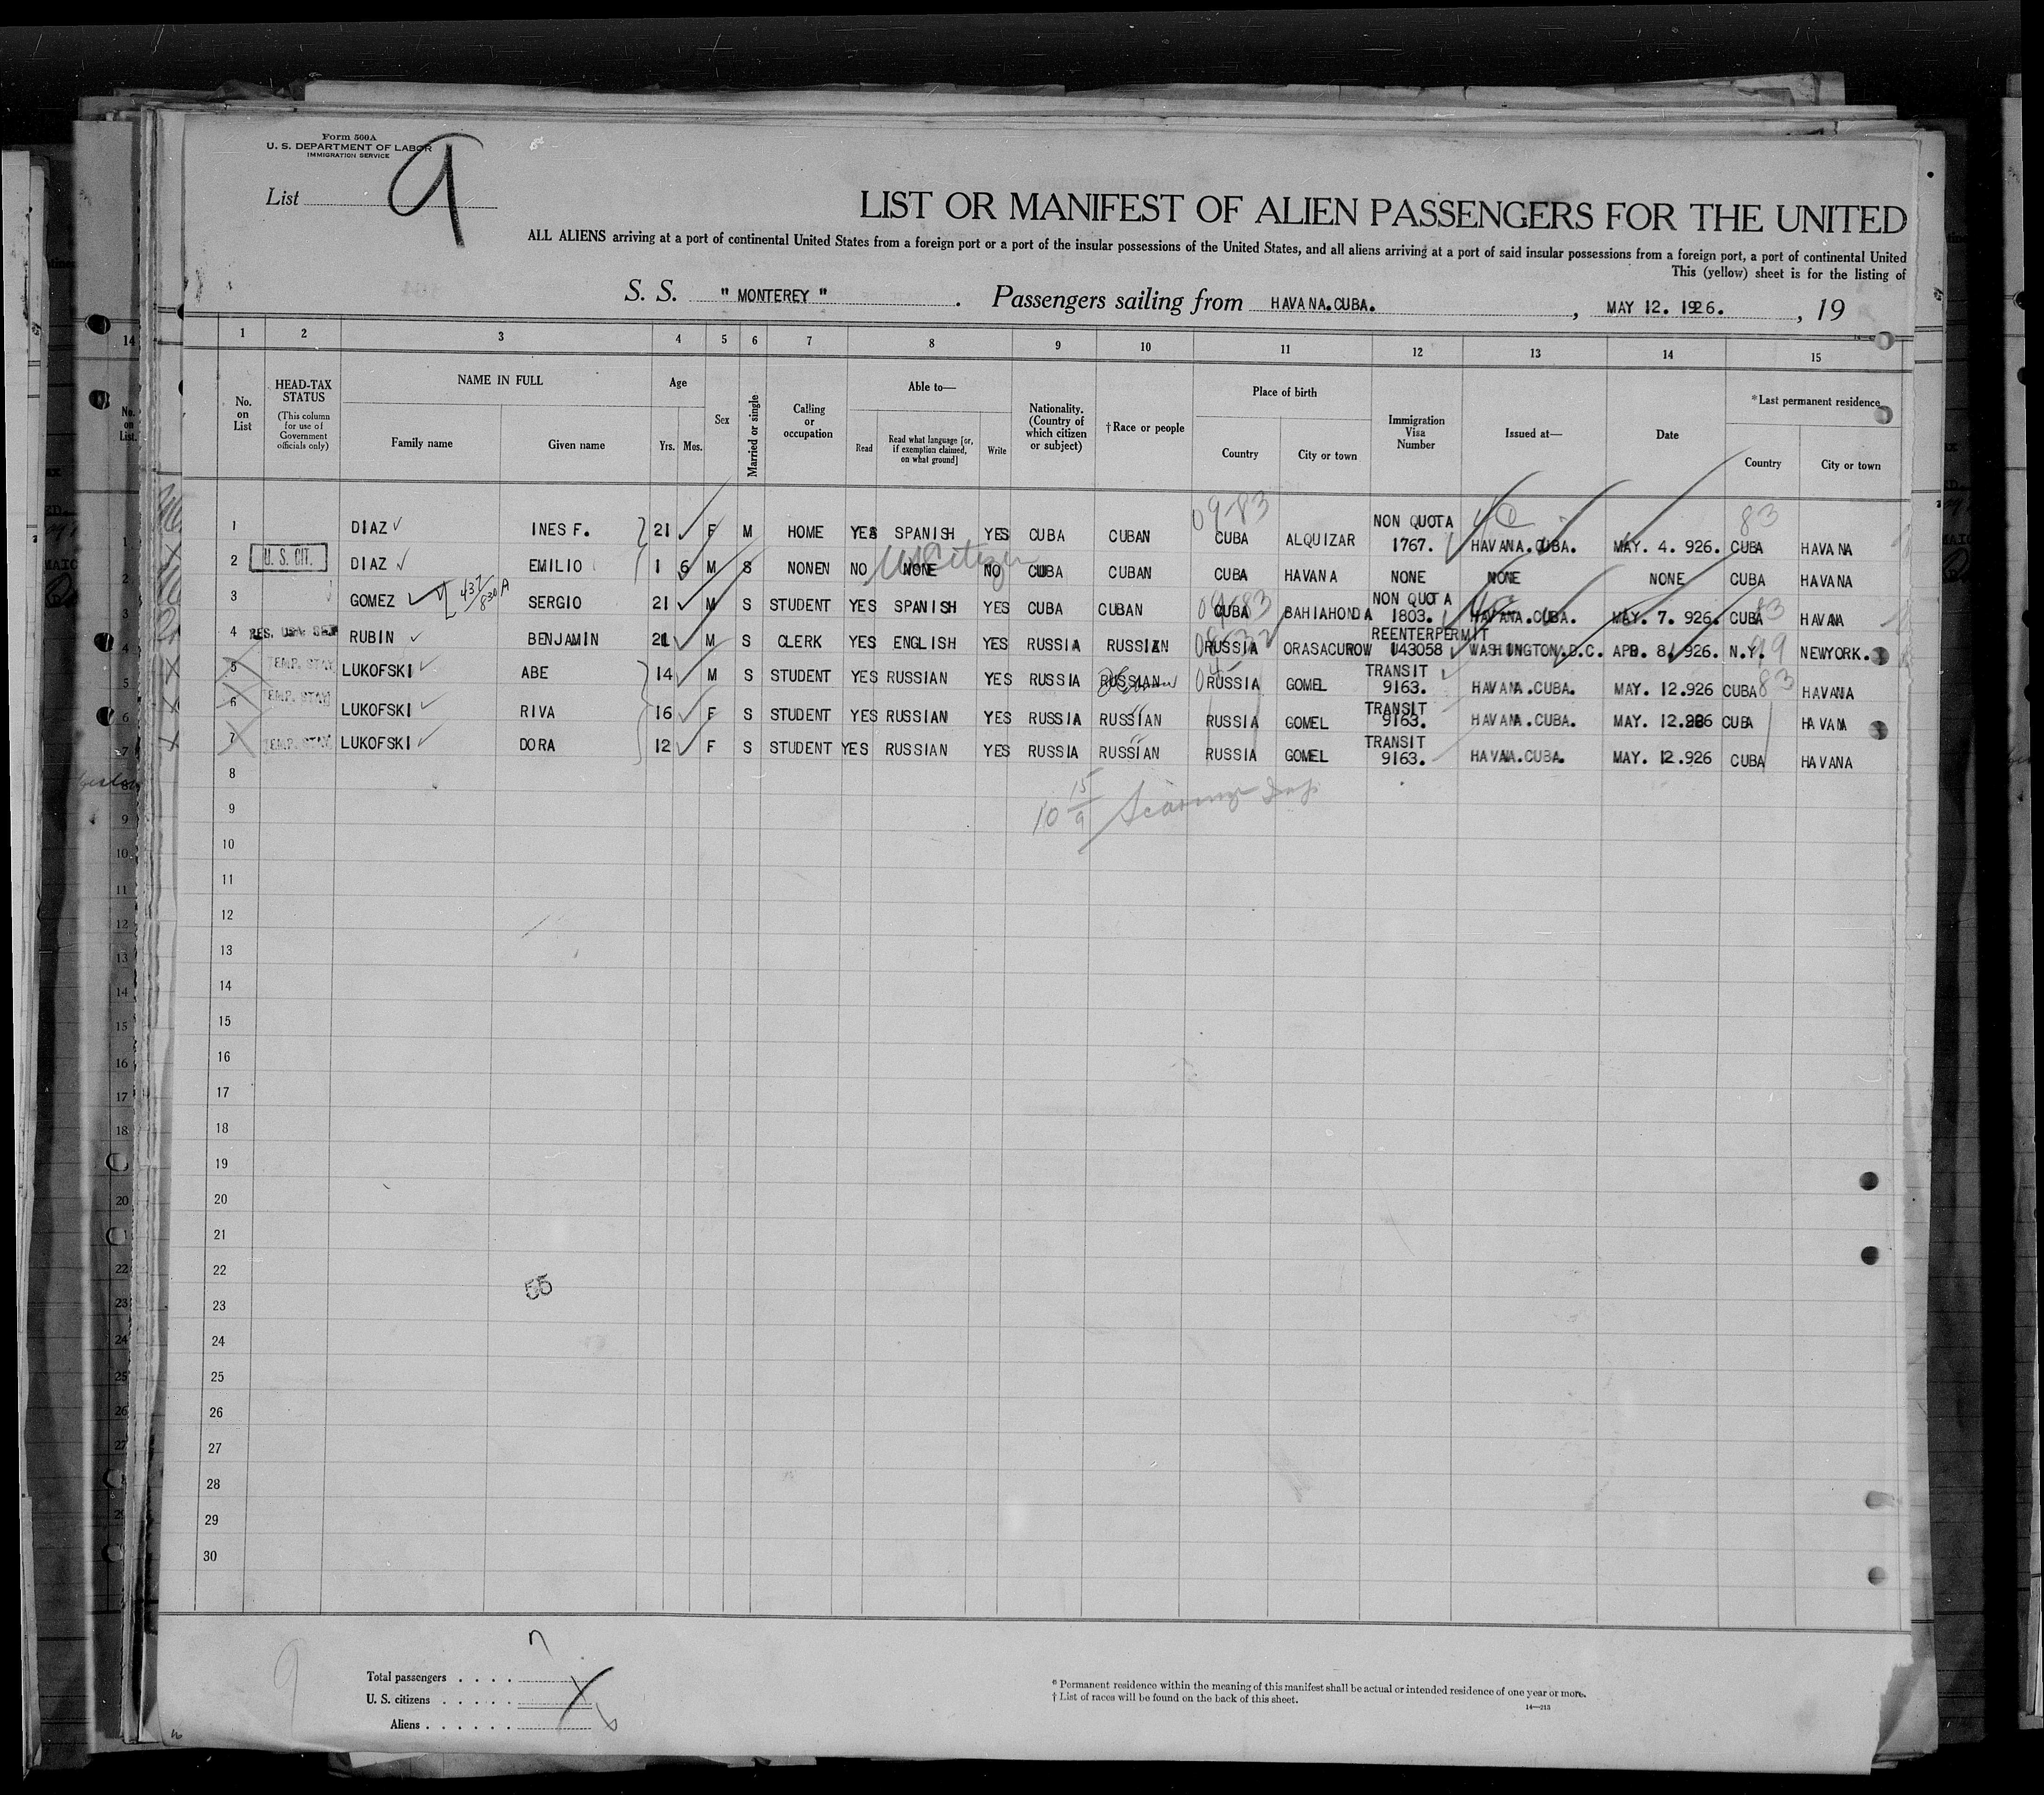 Form 500A
U. S. DEPARTMENT OF LABOR
IMMIGRATION SERVICE
List 9
LIST OR MANIFEST OF ALIEN PASSENGERS FOR THE UNITED
ALL ALIENS arriving at a port of continental United States from a foreign port or a port of the insular possessions of the United States, and all aliens arriving at a port of said insular possessions from a foreign port, a port of continental United
This (yellow) sheet is for the listing of
S. S. " MONTEREY " . Passengers sailing from HAVANA.CUBA. , MAY 12. 1926. , 19
1 2 3 4 5 6 7 8 9 10 11 12 13 14 15
No. on List
HEAD-TAX STATUS
(This column for use of Government officials only)
NAME IN FULL
Family name Given name
Age
Yrs. Mos.
Sex
Married or single
Calling or occupation
Able to—
Read Read what language [or, if exemption claimed, on what ground] Write
Nationality. (Country of which citizen or subject)
†Race or people
Place of birth
Country City or town
Immigration Visa Number
Issued at—
Date
*Last permanent residence
Country City or town
09-83 83
NON QUOTA
1 DIAZ INES F. 21 F M HOME YES SPANISH YES CUBA CUBAN CUBA ALQUIZAR 1767. HAVANA.CUBA. MAY. 4. 926. CUBA HAVANA
2 U. S. CIT. DIAZ EMILIO 1 6 M S NONEN NO NONE NO CUBA CUBAN CUBA HAVANA NONE NONE NONE CUBA HAVANA
US Citizen
NON QUOTA
3 GOMEZ 437/830 A SERGIO 21 M S STUDENT YES SPANISH YES CUBA CUBAN CUBA BAHIAHONDA 1803. HAVANA.CUBA. MAY. 7. 926. CUBA HAVANA
REENTERPERMIT
4 RUBIN BENJAMIN 21 M S CLERK YES ENGLISH YES RUSSIA RUSSIAN RUSSIA ORASACUROW U43058 WASHINGTON.D.C. APR. 8. 926. N.Y. 99 NEWYORK.
TRANSIT
5 TEMP. STAY LUKOFSKI ABE 14 M S STUDENT YES RUSSIAN YES RUSSIA RUSSIAN Hebrew RUSSIA GOMEL 9163. HAVANA.CUBA. MAY. 12.926 CUBA 83 HAVANA
TRANSIT
6 TEMP. STAY LUKOFSKI RIVA 16 F S STUDENT YES RUSSIAN YES RUSSIA RUSSIAN RUSSIA GOMEL 9163. HAVANA.CUBA. MAY. 12.926 CUBA HAVANA
TRANSIT
7 TEMP. STAY LUKOFSKI DORA 12 F S STUDENT YES RUSSIAN YES RUSSIA RUSSIAN RUSSIA GOMEL 9163. HAVANA.CUBA. MAY. 12.926 CUBA HAVANA
8
10 15/9
9
10
11
12
13
14
15
16
17
18
19
20
21
22
55
23
24
25
26
27
28
29
30
Total passengers . . . . 7
U. S. citizens . . . . . .
Aliens . . . . . . 6
9
* Permanent residence within the meaning of this manifest shall be actual or intended residence of one year or more.
† List of races will be found on the back of this sheet.
14—213